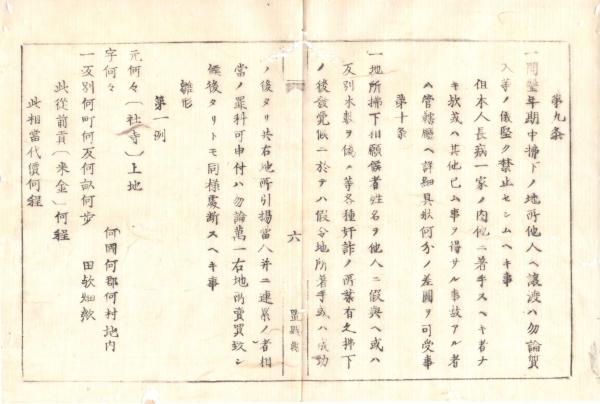 第九条
一開墾年期中拂下ノ地所他人ヘ譲渡ハ勿論質
入等ノ儀堅ク禁止セシムヘキ事
但本人長病一家ノ内他ニ著手スヘキ者ナ
キ欤或ハ其他已ム事ヲ得サル事故アル者
ハ管轄廳ヘ詳細具狀何分ノ差圖ヲ可受事
第十条
一地所拂下相願候者姓名ヲ他人ニ假與ヘ或ハ
反別木数ヲ偽ル等各種奸詐ノ所業有之拂下
ノ後發覚候ニ於テハ假令地所著手或ハ成功
六
ノ後タリ共右地所引揚當人并ニ連累ノ者相
當ノ罪科可申付ハ勿論萬一右地所賣買致シ
候後タリトモ同様處断スヘキ事
雛形
第一例
元何々〔社寺〕上地
字何々 何國何郡何村地内
一反別何町何反何畝何歩 田欤畑欤
此従前貢〔米金〕何程
此相當代價何程